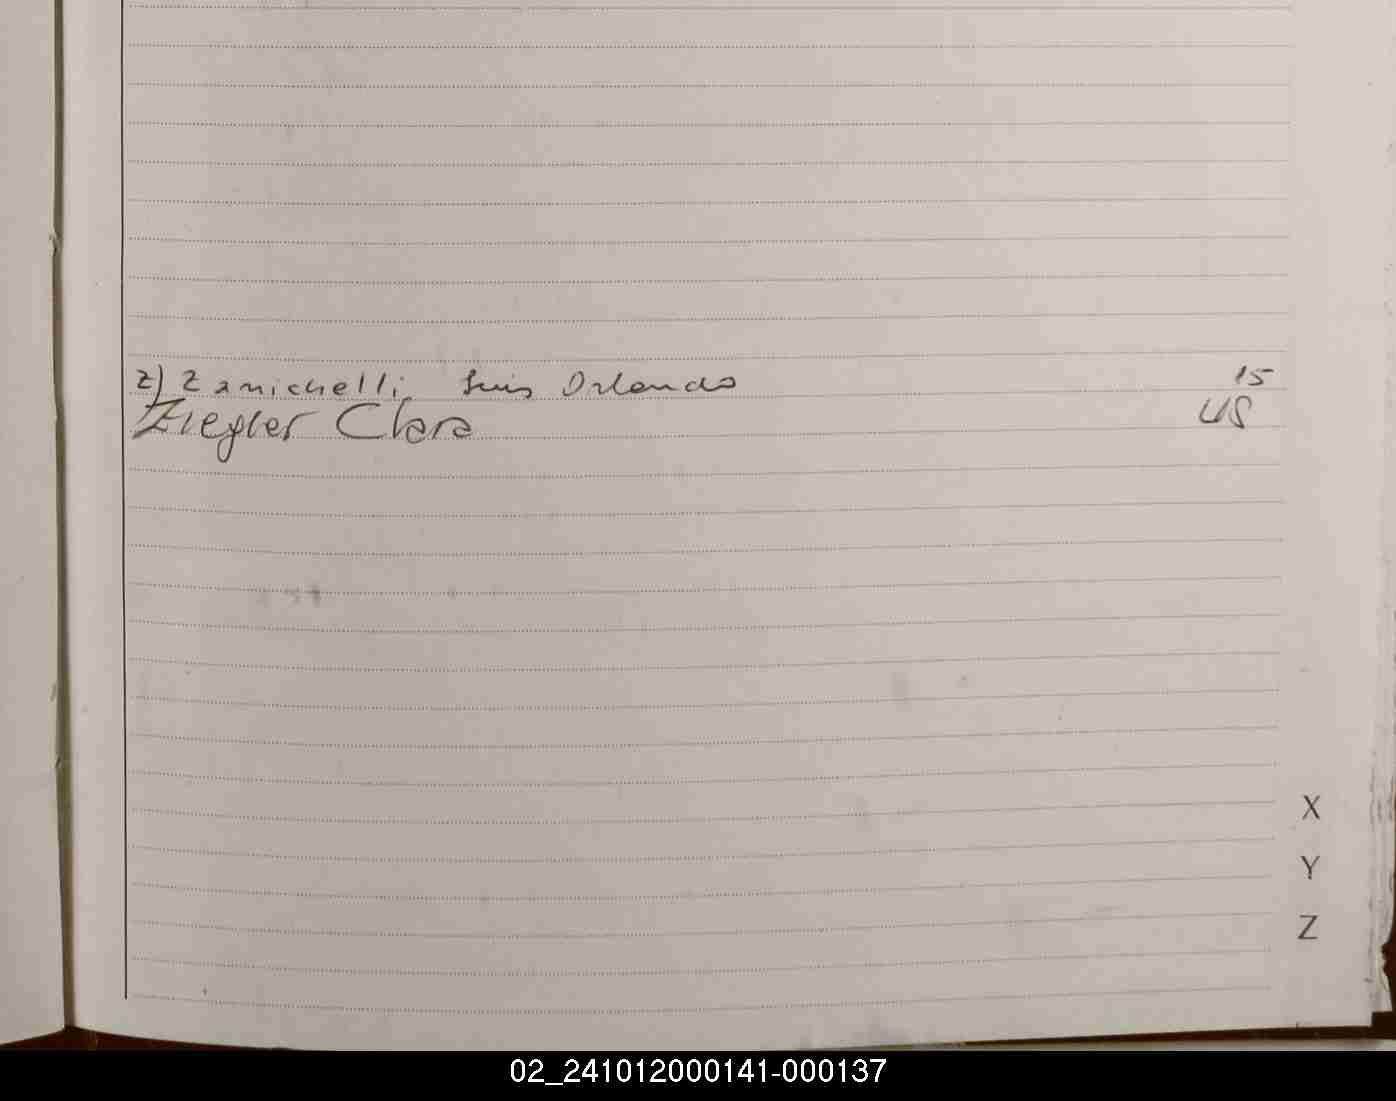 Z) Zanichelli, Luis Orlando 15
Ziegler Clara 48
X
Y
Z
02_241012000141-000137